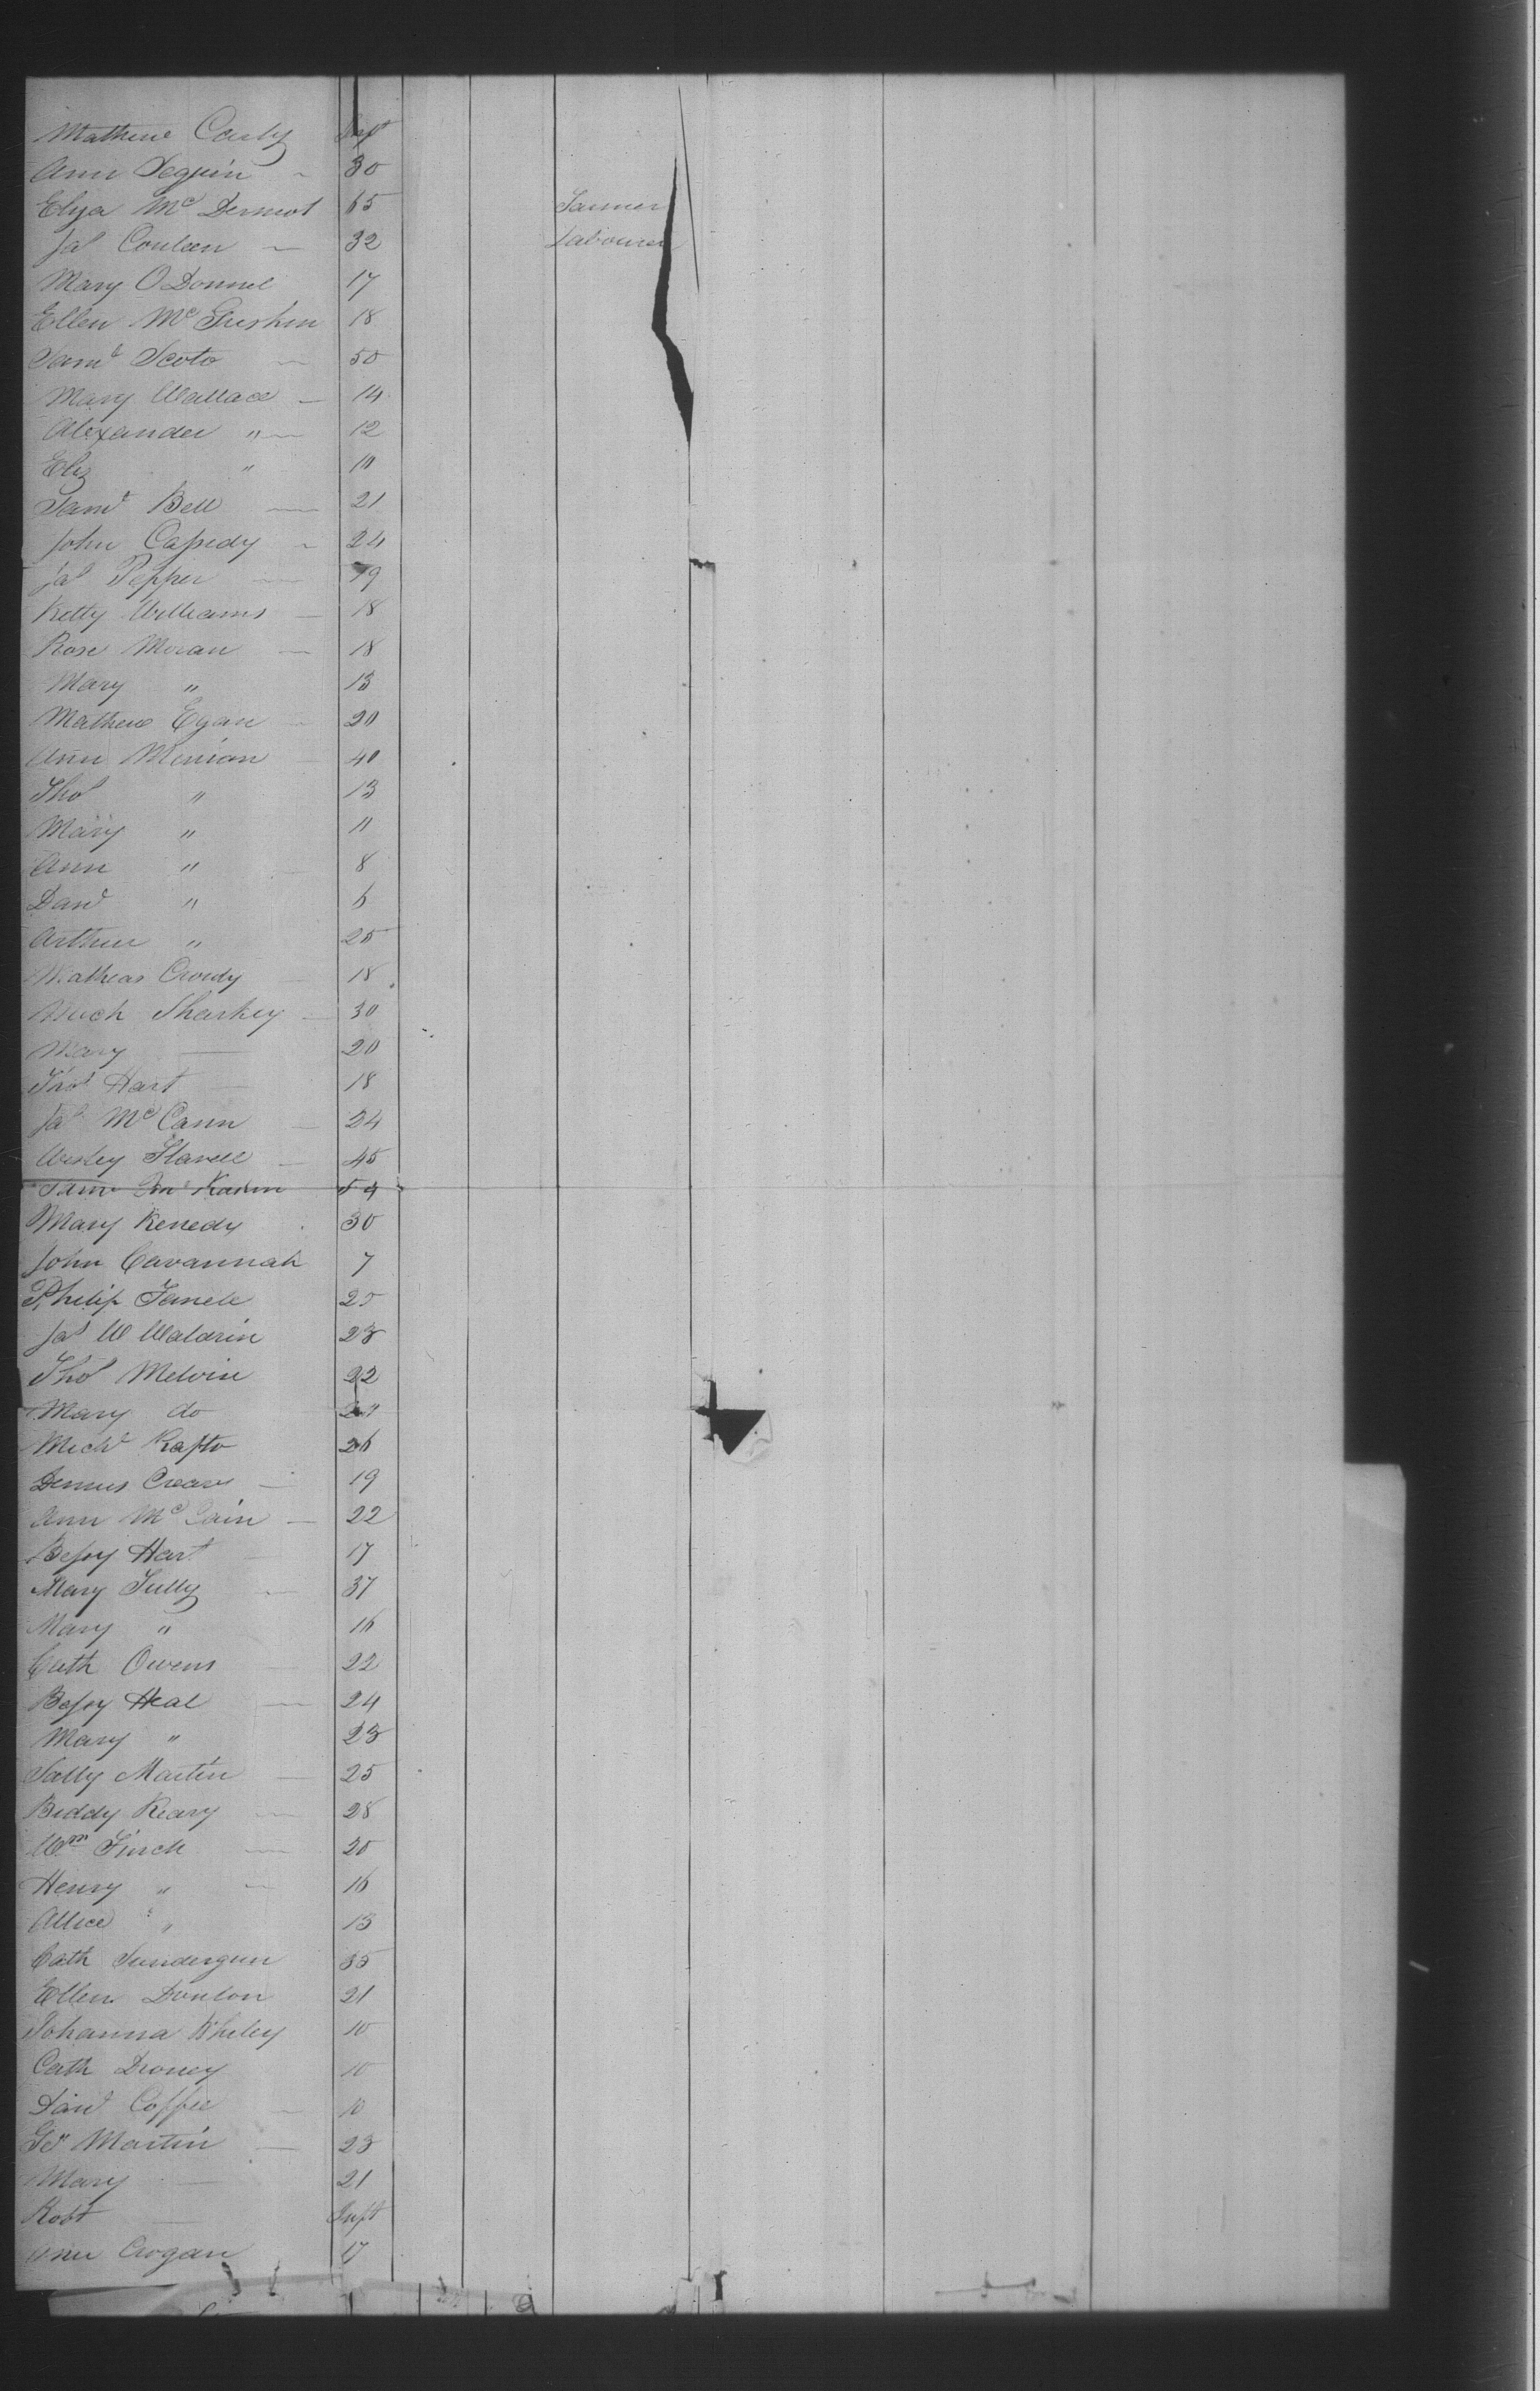 Mathew Carty Inft
Ann Seguin 30
Eliza Mc Dermot 65 Farmer
Jas Conleen 32 Labourer
Mary O Donnel 17
Ellen Mc Gushin 18
Saml Scoto 50
Mary Wallace 14
Alexander " 12
Eliz " 10
Saml Bell 21
John Cassedy 24
Jas Pepper 19
Kitty Williams 18
Rose Moran 18
Mary " 13
Mathew Egan 20
Ann Minion 40
Thos " 13
Mary " 11
Ann " 8
David " 6
Arthur " 25
Mathias Crowdy 18
Mich Sharkey 30
Mary — 20
Thos Hart 18
Jas Mc Cann 24
Wesley Flavell 45
54
Mary Kenedy 30
John Cavannah 7
Philip 25
Jas W Waldrin 23
Thos Melvin 22
Mary do
Michl Rafto 26
Dennis Crean 19
Ann Mc Cain 22
Bessy Hart 17
Mary Tully 37
Mary " 16
Cath Owens 22
Bessy Heal 24
Mary " 23
Sally Martin 25
Biddy Keary 28
Wm Finch 20
Henry " 16
Allice " 13
Cath Sundergun 35
Ellen Donlon 21
Johanna Wheley 10
Cath Droney 10
David Coffee 10
Geo Martin 23
Mary — 21
Robt — Inft
Ann Crogan 17